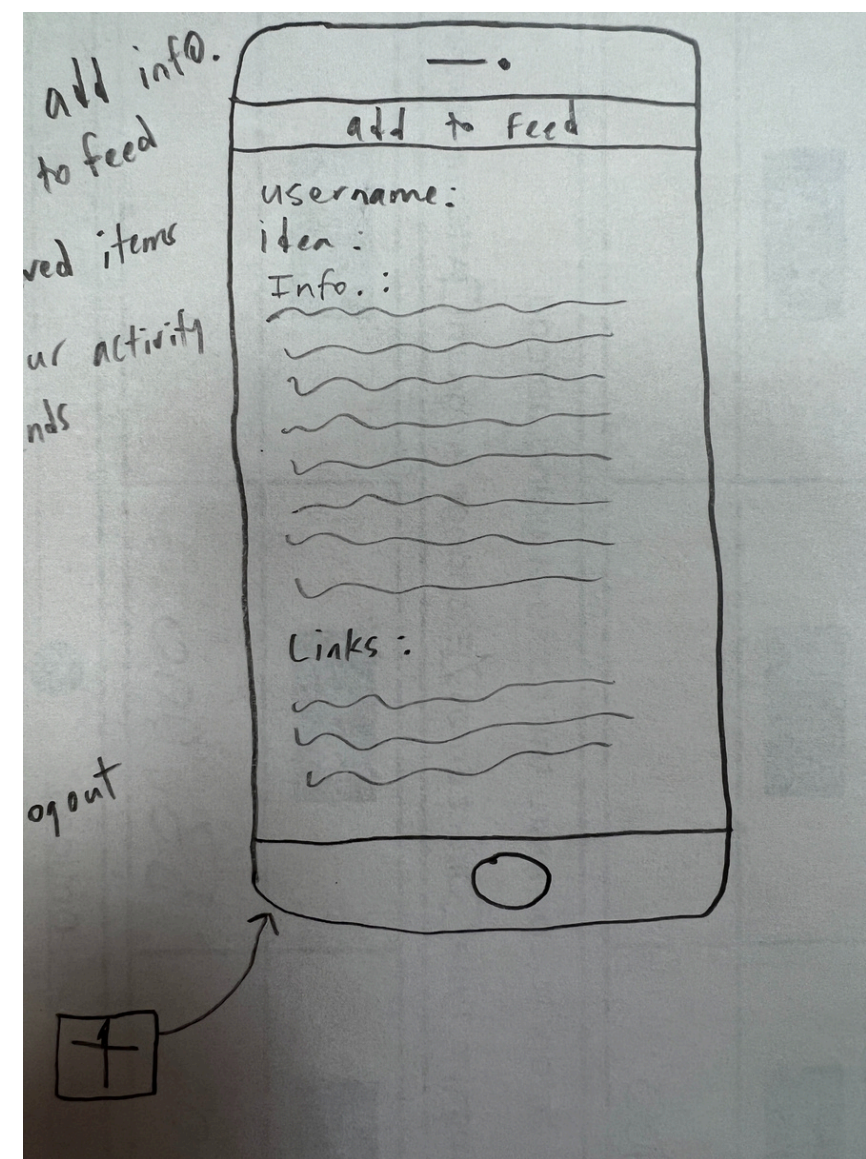 add info.
to feed
ved items
ur activity
nds
ogout
add to feed
username:
idea :
Info. :
Links :